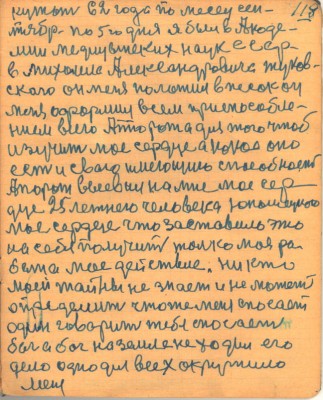 118
62 года по месец сен-
тябр- по 5 го дня я был в Акаде-
мии медицинских наук СССР
в михаила Александровича жуков-
ского он меня положил в песок он
меня оформил всем приспособле-
нием в его для того чтоб
изучит мое сердце а какое оно
ест и сваю имеющию способност
на мне мое сер
дце 25 летнего человека
мое сердце что заставило это
на себя получит толко моя ра-
бота мое действие. ни кто
моей тайны не знает и не может
определит что же меня спосает
один говорит тебя спосает
бог а бог на земле не ходил его
дело одно для всех окружило